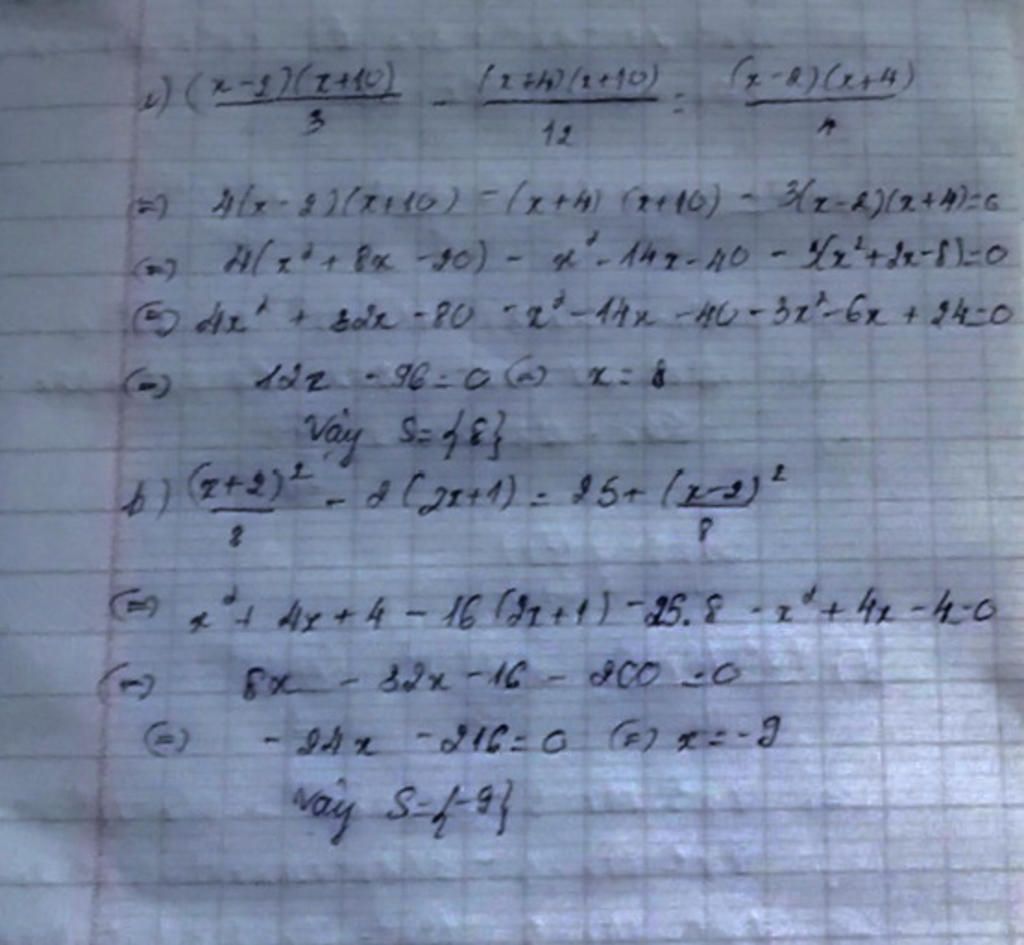 a) (x-2)(x+10)/3 - (x+4)(x+10)/12 = (x-2)(x+4)/4
(=) 4(x-2)(x+10) - (x+4)(x+10) - 3(x-2)(x+4)=0
(=) 4(x²+8x-20) - x²-14x-40 - 3(x²+2x-8)=0
(=) 4x² + 32x - 80 - x² - 14x - 40 - 3x² - 6x + 24=0
(=) 12x - 96 = 0 (=) x = 8
Vậy S={8}
b) (x+2)²/8 - 2(2x+1) = 25 + (x-2)²/8
(=) x² + 4x + 4 - 16(2x+1) - 25.8 - x² + 4x - 4=0
(=) 8x - 32x - 16 - 200 = 0
(=) - 24x - 216 = 0 (=) x = -9
Vậy S={-9}